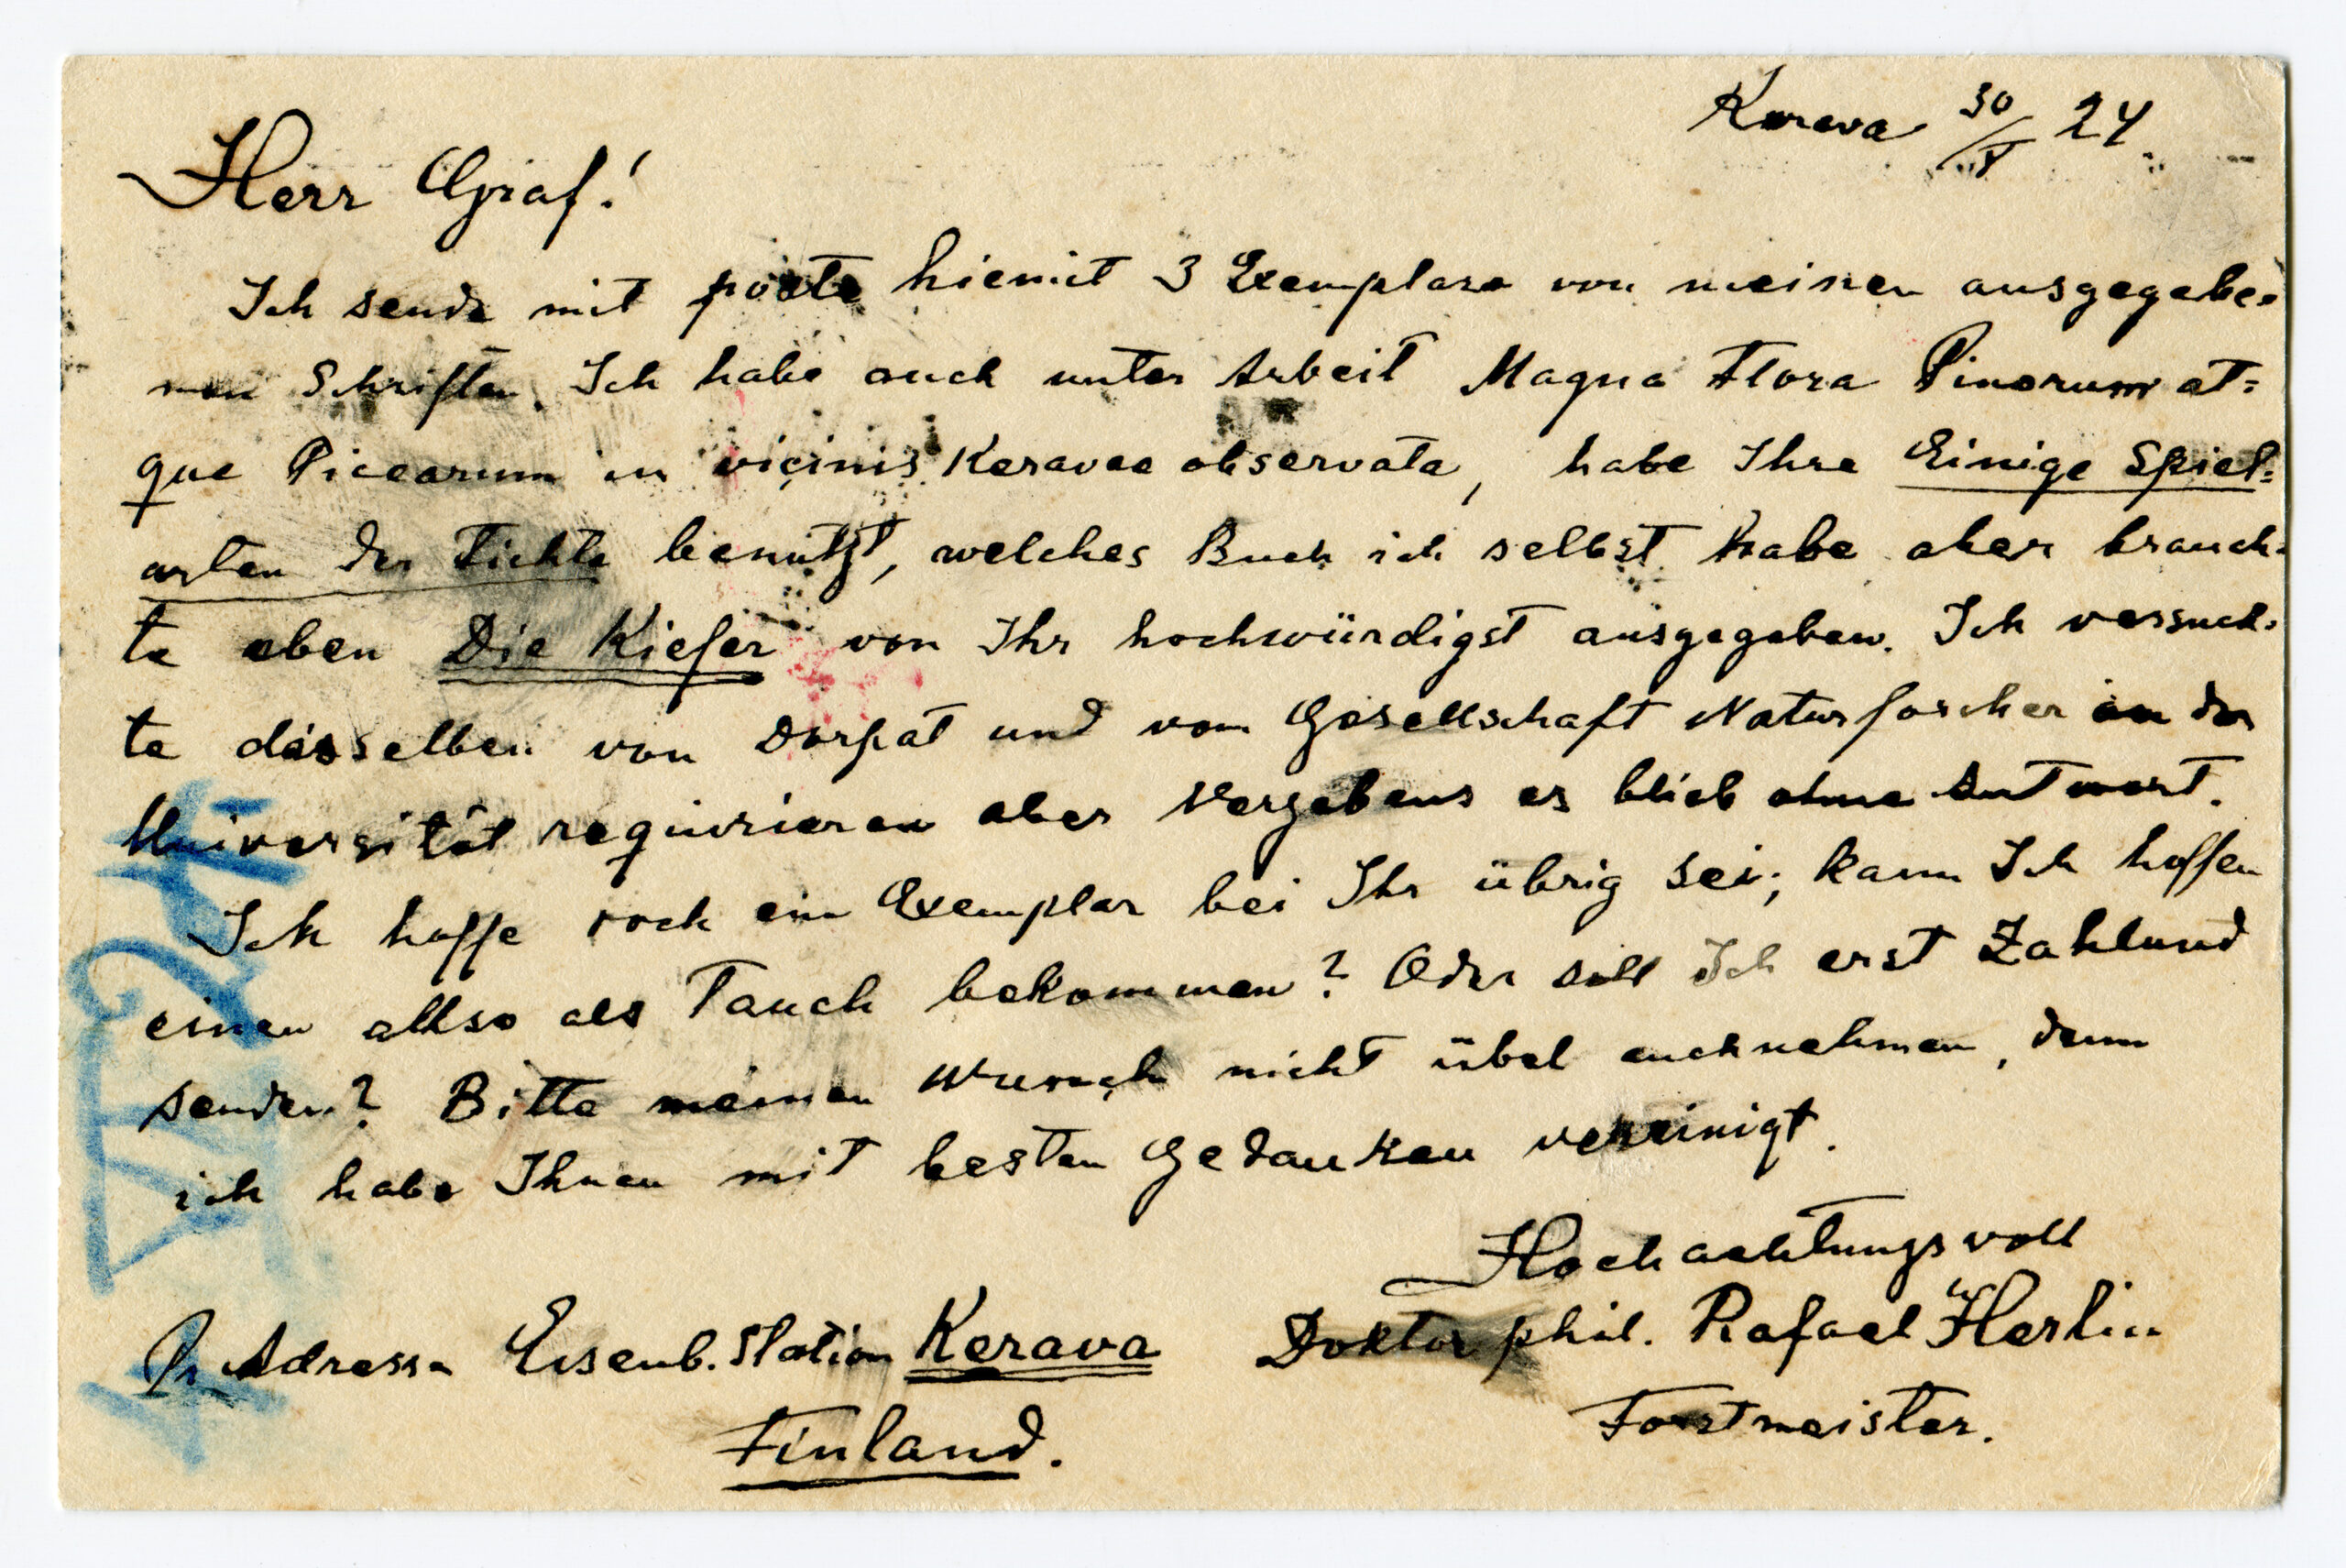 Kerava 30/V 24.
Herr Graf!
Ich sende mit poste hiemit 3 Exemplare von meinen ausgegebe-
nen Schriften. Ich habe auch unter Arbeit Magna Flora Pinorum at=
que Picearum in vicinis Keravae observata, habe Ihre Einige Spiel=
arten der Fichte benutzt, welches Buch ich selbst habe aber brauch-
te eben Die Kiefer von Ihr hochwürdigst ausgegeben. Ich versuch-
te dasselben von Dorpat und vom Gesellschaft Naturforscher an der
Universität requirieren aber Vergebens es blieb ohne Antwort.
Ich hoffe noch ein Exemplar bei Ihr übrig sei; kann Ich hoffen
einen allso als Tauch bekommen? Oder soll Ich erst Zahlund
senden? Bitte meinen Wunsch nicht übel auchnehmen, denn
ich habe Ihnen mit besten Gedanken vereinigt.
Hochachtungsvoll
Pr Adresse Eisenb. Station Kerava Doktor phil. Rafael Herlin
Finland. Forstmeister.